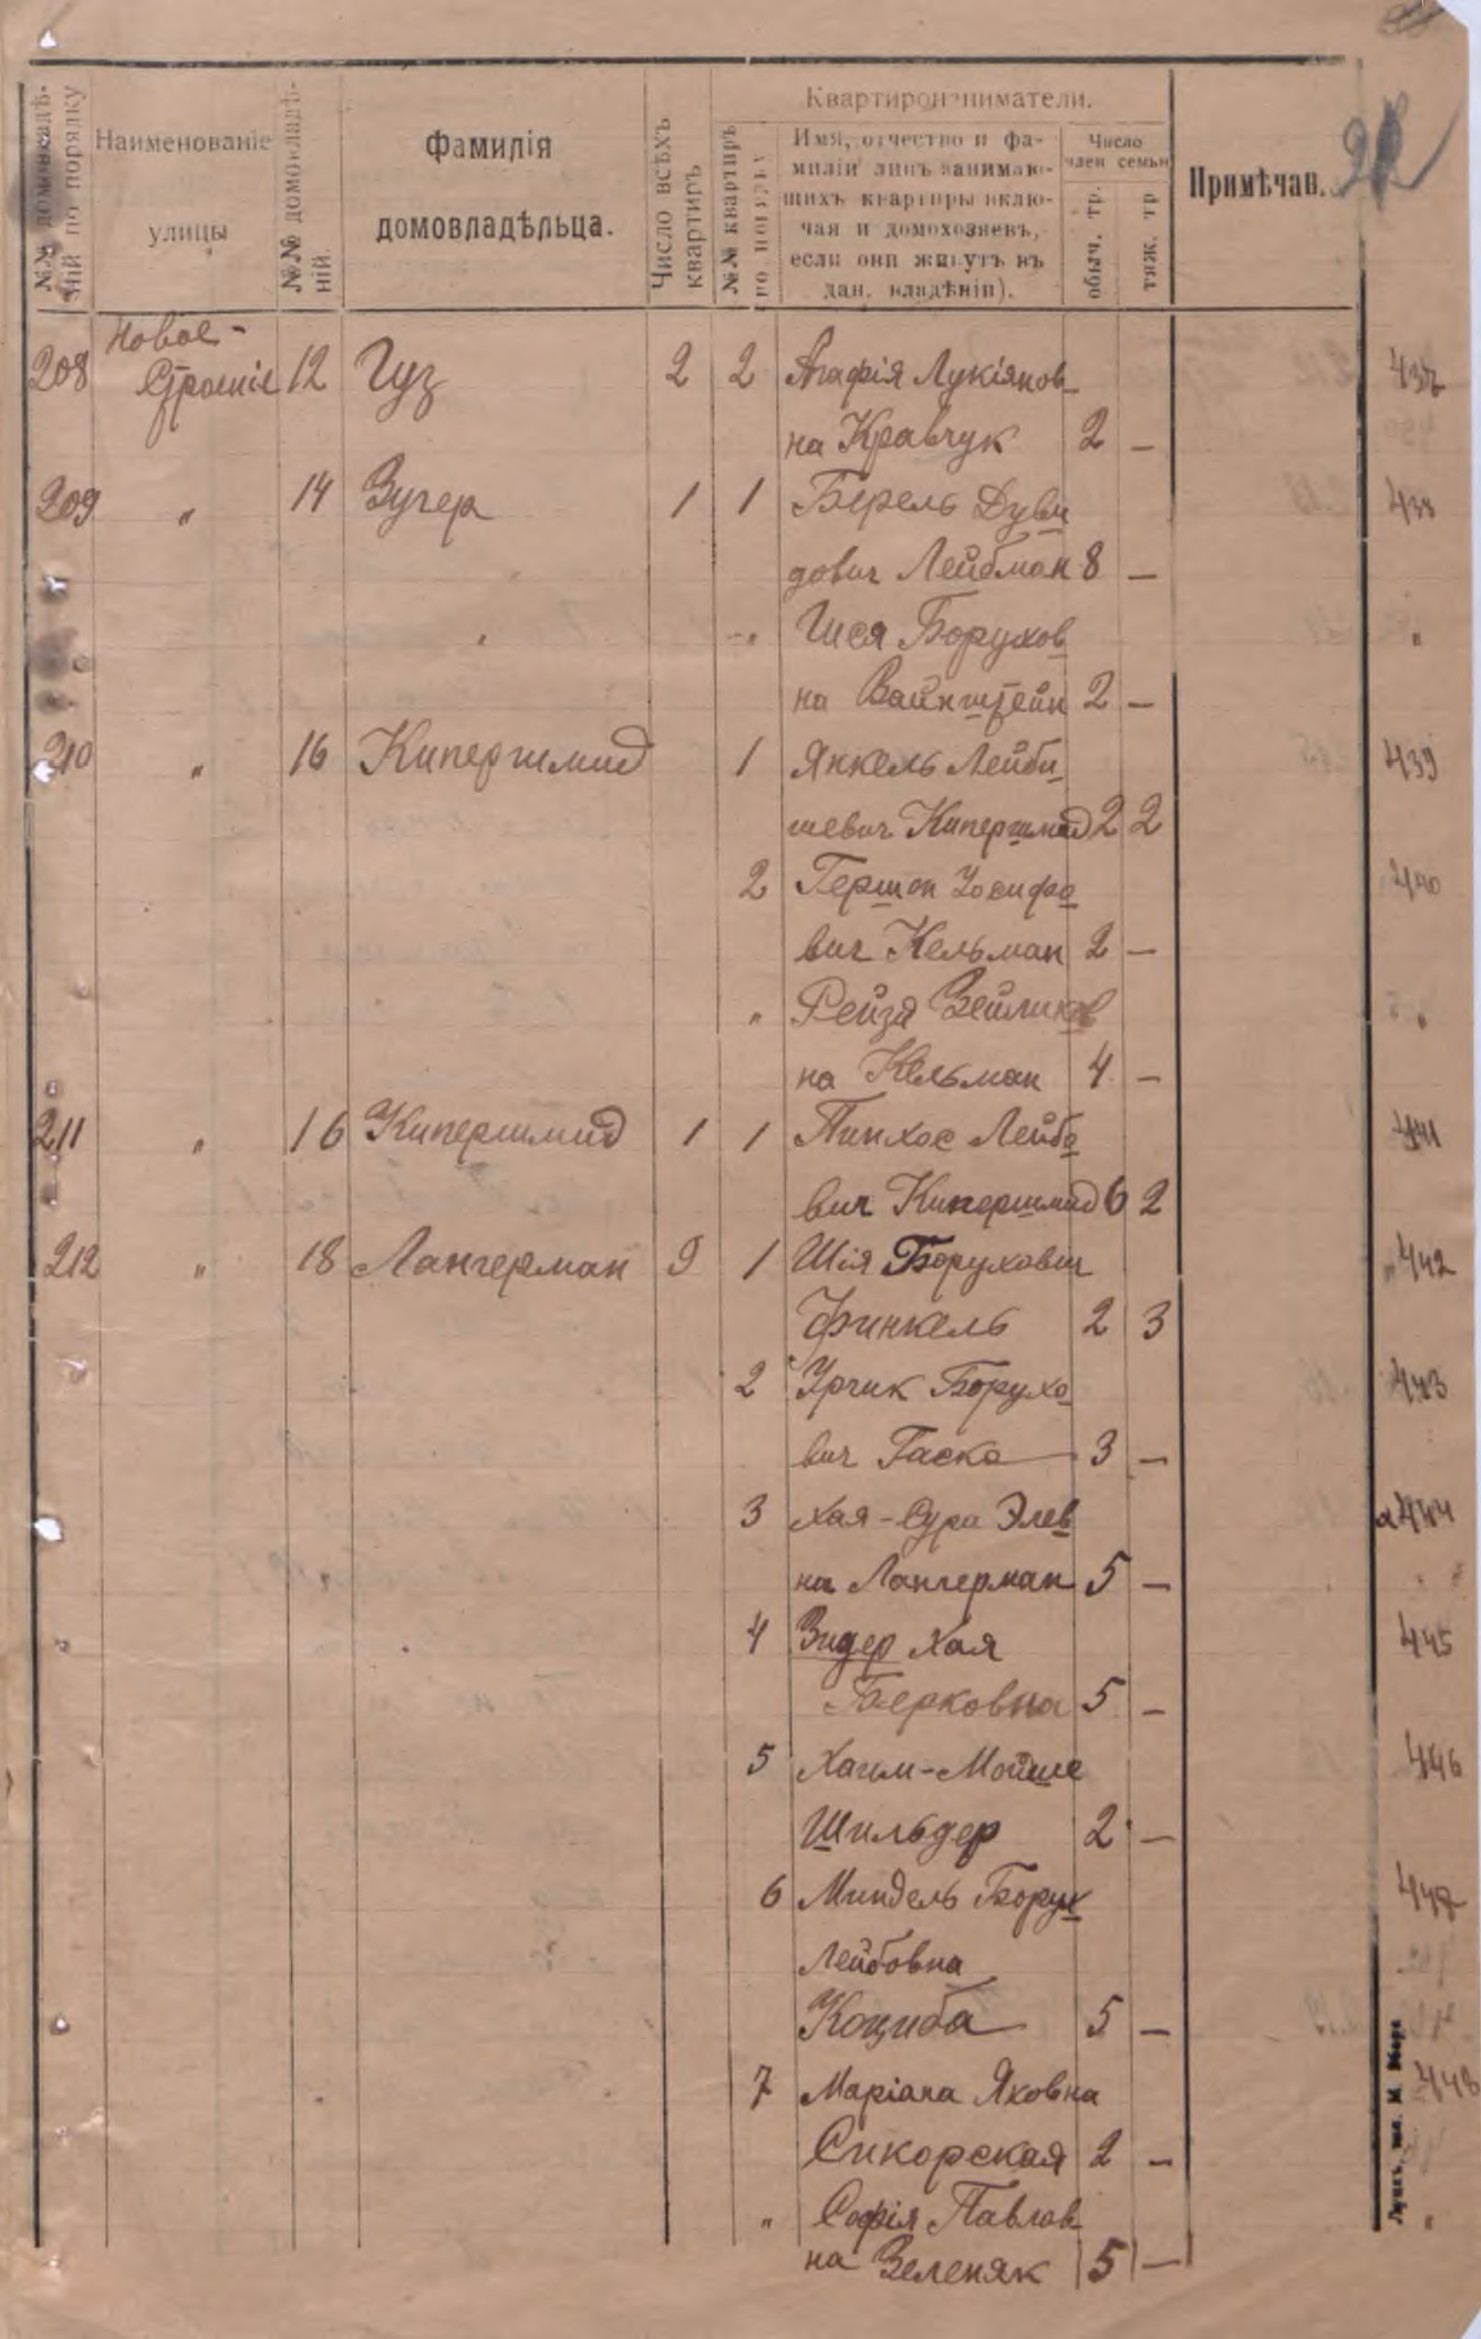 №№ домовладѣ-
ній по порядку
Наименованіе
улицы
№№ домовладѣ-
ній.
Фамилія
домовладѣльца.
Число всѣхъ
квартиръ
Квартиронаниматели.
№№ квартиръ
по порядку
Имя, отчество и фа-
миліи лицъ занимаю-
щихъ квартиры вклю-
чая и домохозяевъ,
если они живутъ въ
дан. владѣніи).
Число
член семьи
обыч. тр.
тяж. тр
Примѣчан.
Новое-
208 Строеніе 12 Гуз 2 2 Агафія Лукіянов 437
на Кравчук 2 —
209 " 14 Зугер 1 1 Берель Дуви 438
дович Лейбман 8 —
" Шея Борухов "
на Вайнштейн 2 —
210 " 16 Кипершмид 1 Янкель Лейби 439
шевич Кипершмид 2 2
2 Гершон Иосифо 440
вич Кельман 2 —
" Рейзя Зейликов "
на Кельман 4 —
211 " 16 Кипершмид 1 1 Пинхос Лейбо 441
вич Кипершмид 6 2
212 " 18 Лангерман 9 1 Шія Борухович 442
Финкель 2 3
2 Ирчик Борухо 443
вич Гаско 3 —
3 Хая-Сура Элев 444
на Лангерман 5 —
4 Зидер Хая 445
Берковна 5 —
5 Хаим-Мойше 446
Шильдер 2 —
6 Миндель Борух 447
Лейбовна
Коциба 5 —
7 Маріана Яковна 448
Сикорская 2 —
" Софія Павлов "
на Зеленяк 5 —